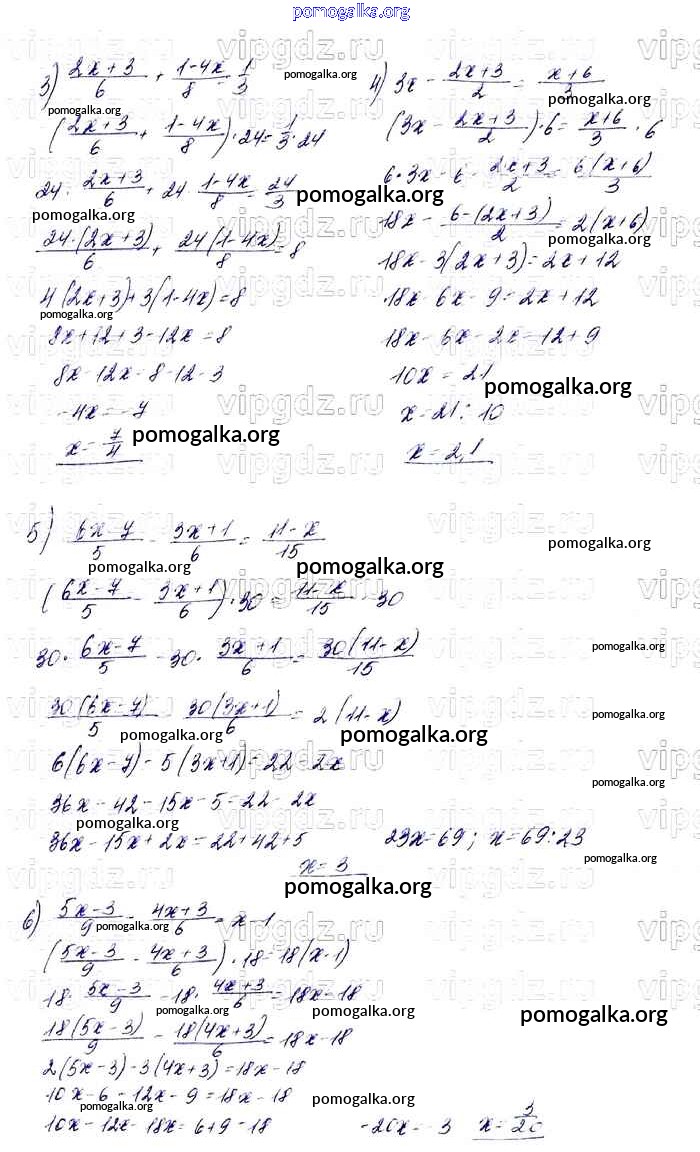 pomogalka.org
3) (2x+3)/6 + (1-4x)/8 = 1/3
((2x+3)/6 + (1-4x)/8)·24 = 1/3·24
24·(2x+3)/6 + 24·(1-4x)/8 = 24/3
24·(2x+3)/6 + 24(1-4x)/8 = 8
4(2x+3)+3(1-4x)=8
8x+12+3-12x=8
8x-12x=8-12-3
-4x=-7
x=7/4
4) 3x - (2x+3)/2 = (x+6)/3
(3x - (2x+3)/2)·6 = (x+6)/3·6
6·3x - 6·(2x+3)/2 = 6(x+6)/3
18x - 6·(2x+3)/2 = 2(x+6)
18x-3(2x+3)=2x+12
18x-6x-9=2x+12
18x-6x-2x=12+9
10x=21
x=21:10
x=2,1
5) (6x-7)/5 - (3x+1)/6 = (11-x)/15
((6x-7)/5 - (3x+1)/6)·30 = (11-x)/15·30
30·(6x-7)/5 - 30·(3x+1)/6 = 30(11-x)/15
30(6x-7)/5 - 30(3x+1)/6 = 2(11-x)
6(6x-7)-5(3x+1)=22-2x
36x-42-15x-5=22-2x
36x-15x+2x=22+42+5 23x=69; x=69:23
x=3
6) (5x-3)/9 - (4x+3)/6 = x-1
((5x-3)/9 - (4x+3)/6)·18=18(x-1)
18·(5x-3)/9 - 18·(4x+3)/6 = 18x-18
18(5x-3)/9 - 18(4x+3)/6 = 18x-18
2(5x-3)-3(4x+3)=18x-18
10x-6-12x-9=18x-18
10x-12x-18x=6+9-18 -20x=-3 x=3/20